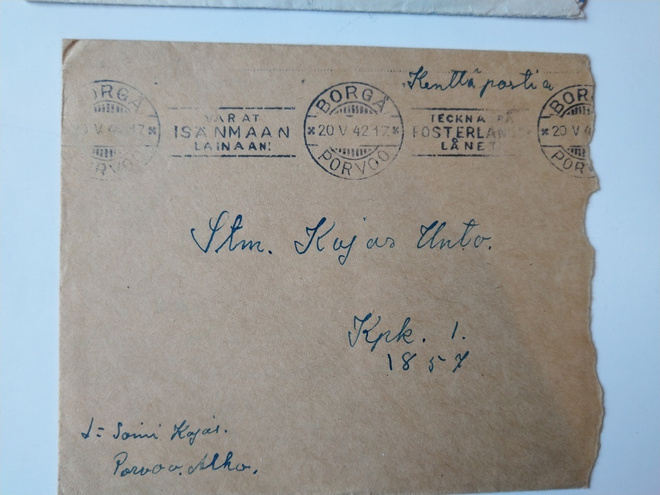 Kenttäpostia
BORGÅ
20 V 42 17
PORVOO
VARAT
ISÄNMAAN
LAINAAN!
BORGÅ
20 V 42 17
PORVOO
TECKNA PÅ
FOSTERLANDS
LÅNET
BORGÅ
20 V 4
Stm. Kojas Unto.
Kpk. 1.
1857
L= Soini Kojas.
Porvoo. Alho.